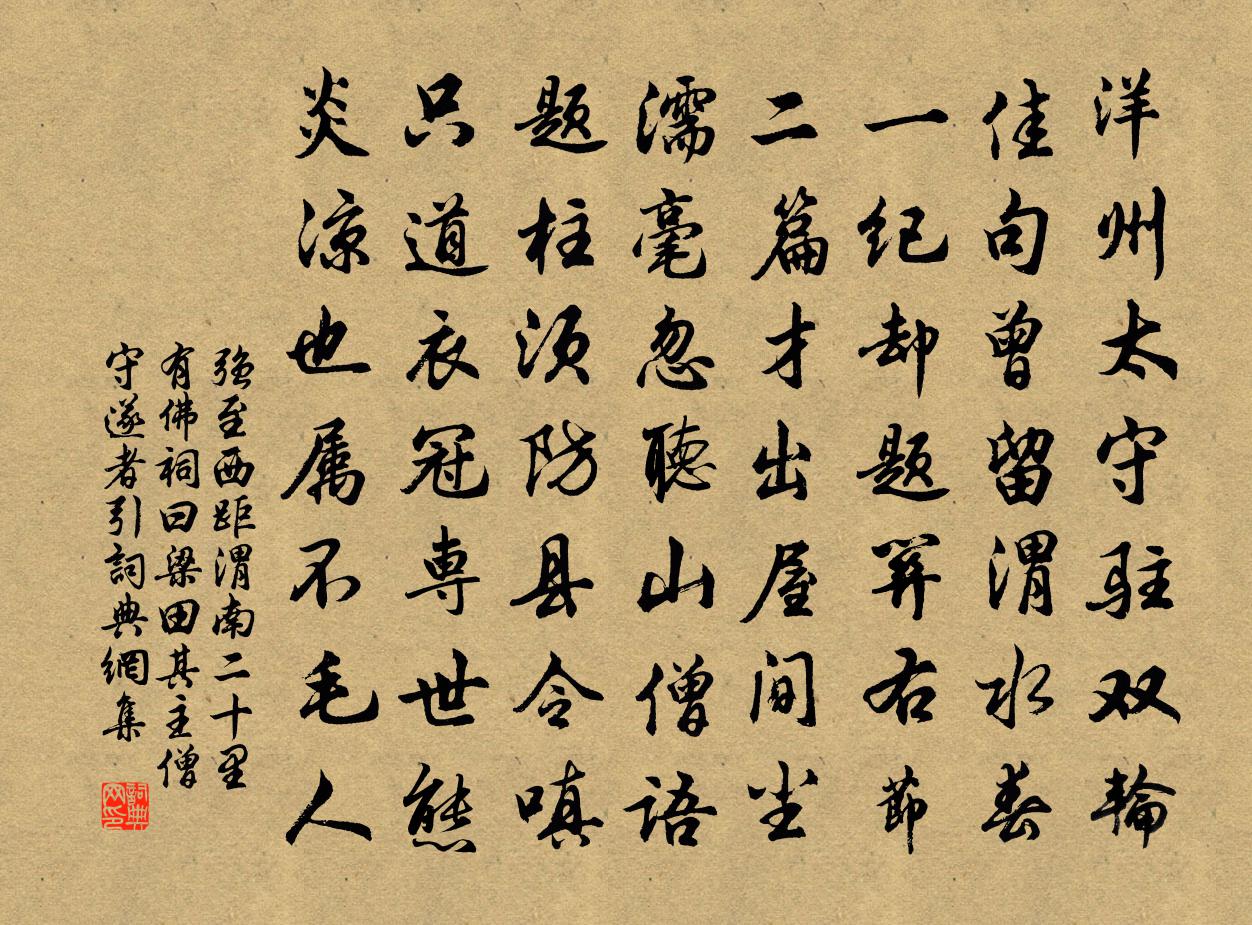 洋州太守驻双轮
佳句曾留渭水春
一纪却题笄右节
二篇才出屋间尘
濡毫忽听山僧语
题柱须防县令嗔
只道衣冠专世态
炎凉也属不毛人
强至西距渭南二十里
有佛祠曰梁田其主僧
守遂者引詞典網集
詞典网印